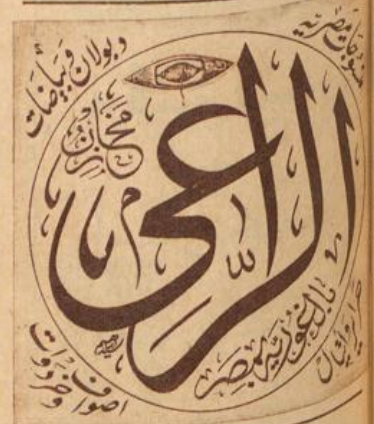 منسوجات مصرية
دبولان وبياضات
مخازن
الراعى
بالغورية بمصر
حراير
اصواف
وخردوات